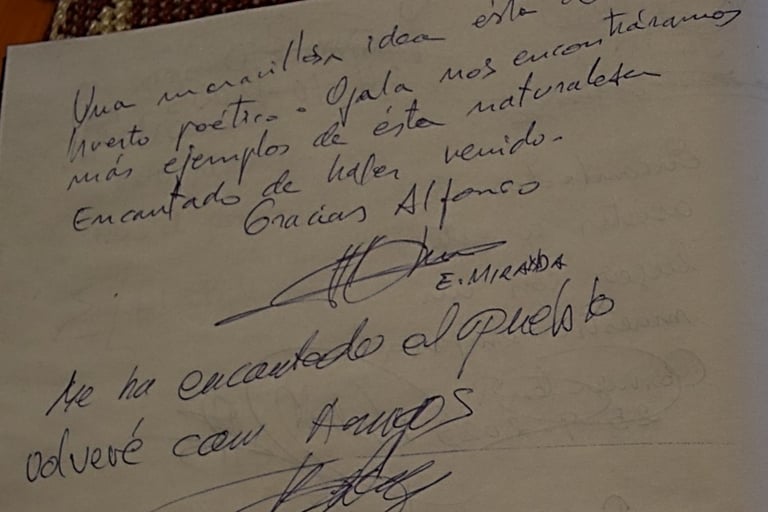 Una maravillosa idea ésta
huerto poético. Ojala nos encontráramos
más ejemplos de ésta naturalesa
Encantado de haber venido.
Gracias Alfonso
E. MIRANDA
Me ha encantado el
volveré con Amigos